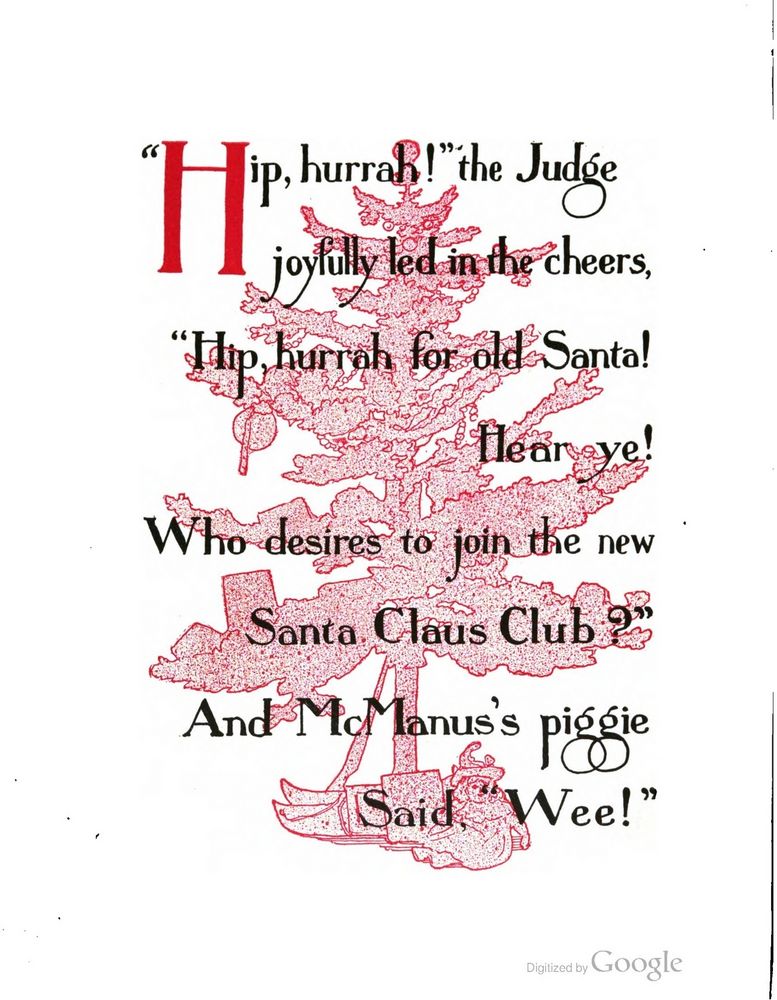 “Hip, hurrah!” the Judge
joyfully led in the cheers,
“Hip, hurrah for old Santa!
Hear ye!
Who desires to join the new
Santa Claus Club?”
And McManus’s piggie
Said, “Wee!”
Digitized by Google